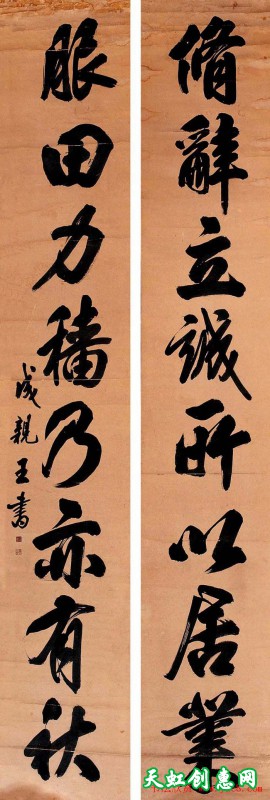 脩辭立誠所以居業
服田力穡乃亦有秋
成親王書
天虹创惠网